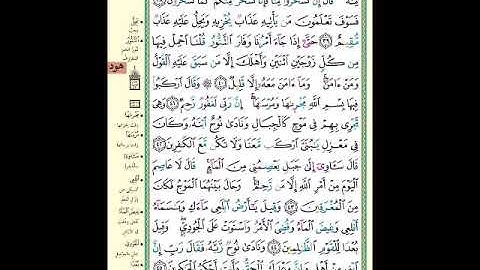 مِنْهُ قَالَ إِن تَسْخَرُوا۟ مِنَّا فَإِنَّا نَسْخَرُ مِنكُمْ كَمَا تَسْخَرُونَ
فَسَوْفَ تَعْلَمُونَ مَن يَأْتِيهِ عَذَابٌ يُخْزِيهِ وَيَحِلُّ عَلَيْهِ عَذَابٌ
مُّقِيمٌ ٣٩ حَتَّىٰٓ إِذَا جَآءَ أَمْرُنَا وَفَارَ ٱلتَّنُّورُ قُلْنَا ٱحْمِلْ فِيهَا
مِن كُلٍّ زَوْجَيْنِ ٱثْنَيْنِ وَأَهْلَكَ إِلَّا مَن سَبَقَ عَلَيْهِ ٱلْقَوْلُ
وَمَنْ ءَامَنَ وَمَآ ءَامَنَ مَعَهُۥٓ إِلَّا قَلِيلٌ ٤٠ وَقَالَ ٱرْكَبُوا۟
فِيهَا بِسْمِ ٱللَّهِ مَجْر۪ىٰهَا وَمُرْسَىٰهَآ إِنَّ رَبِّى لَغَفُورٌ رَّحِيمٌ ٤١ وَهِىَ
تَجْرِى بِهِمْ فِى مَوْجٍ كَٱلْجِبَالِ وَنَادَىٰ نُوحٌ ٱبْنَهُۥ وَكَانَ
فِى مَعْزِلٍ يَٰبُنَىَّ ٱرْكَب مَّعَنَا وَلَا تَكُن مَّعَ ٱلْكَٰفِرِينَ ٤٢
قَالَ سَـَٔاوِىٓ إِلَىٰ جَبَلٍ يَعْصِمُنِى مِنَ ٱلْمَآءِ قَالَ لَا عَاصِمَ
ٱلْيَوْمَ مِنْ أَمْرِ ٱللَّهِ إِلَّا مَن رَّحِمَ وَحَالَ بَيْنَهُمَا ٱلْمَوْجُ فَكَانَ
مِنَ ٱلْمُغْرَقِينَ ٤٣ وَقِيلَ يَٰٓأَرْضُ ٱبْلَعِى مَآءَكِ وَيَٰسَمَآءُ
أَقْلِعِى وَغِيضَ ٱلْمَآءُ وَقُضِىَ ٱلْأَمْرُ وَٱسْتَوَتْ عَلَى ٱلْجُودِىِّ وَقِيلَ
بُعْدًا لِّلْقَوْمِ ٱلظَّٰلِمِينَ ٤٤ وَنَادَىٰ نُوحٌ رَّبَّهُۥ فَقَالَ رَبِّ إِنَّ
ٱبْنِى مِنْ أَهْلِى وَإِنَّ وَعْدَكَ ٱلْحَقُّ وَأَنتَ أَحْكَمُ ٱلْحَٰكِمِينَ ٤٥
هود